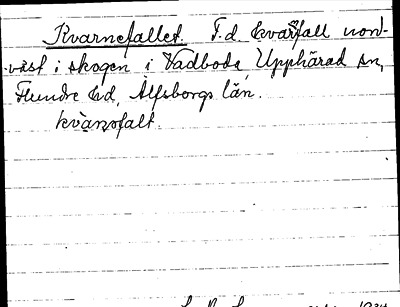 Kvarnefallet. F.d. kvarnfall nord-
väst i skogen i Vadboda, Upphärad sn,
Flundre hd, Älfsborgs län.
1934